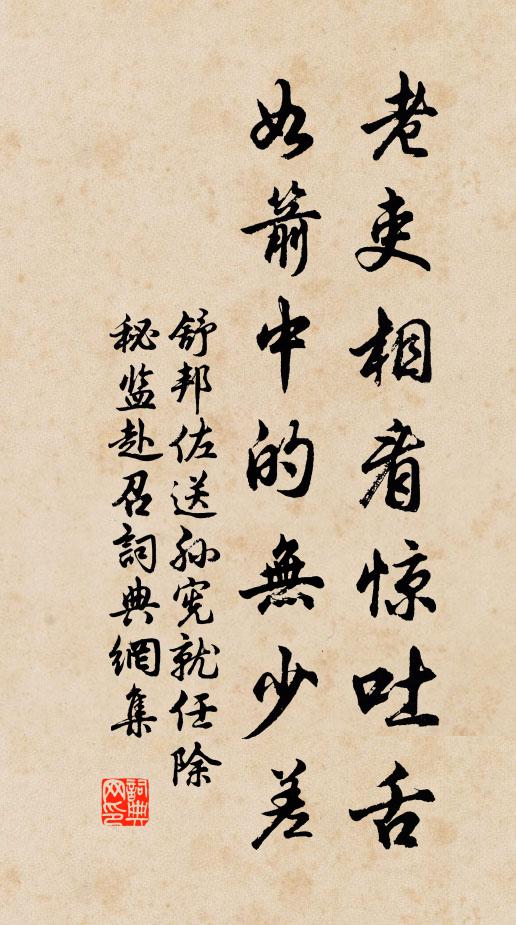 老吏相看惊吐舌
如箭中的無少差
舒邦佐送孙宪就任除
秘监赴召詞典網集
詞典网印